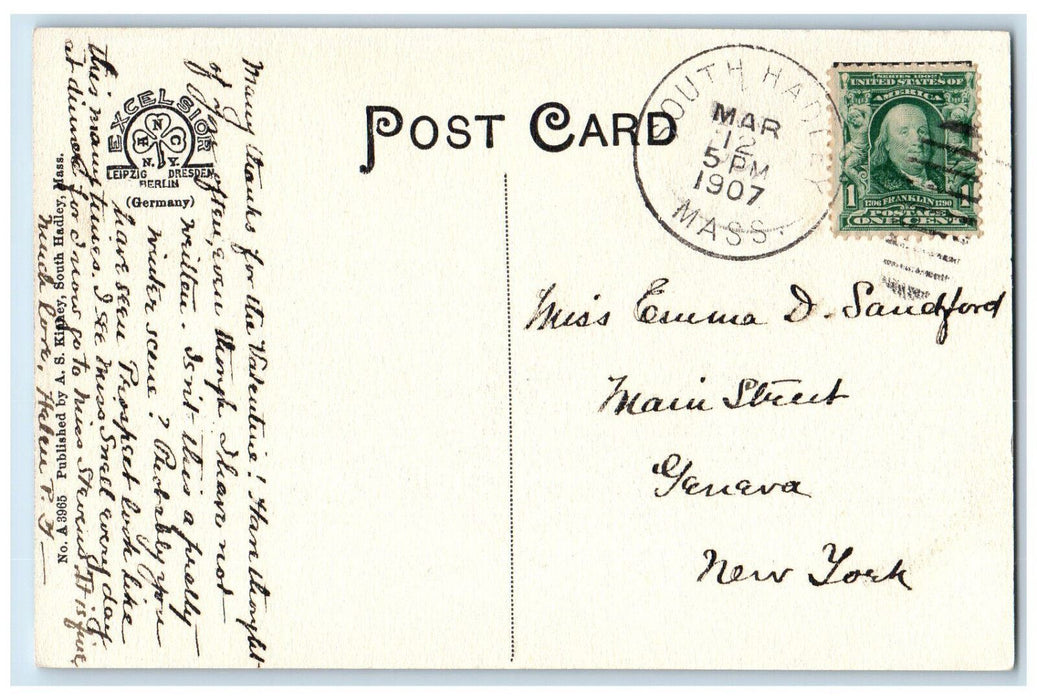 POST CARD
EXCELSIOR
N
H C
N.Y.
LEIPZIG DRESDEN
BERLIN
(Germany)
No. A 3965 Published by A. S. Kinney, South Hadley, Mass.
Many thanks for the Valentine! Han thought
of you often, even though I have not
written. Isn't this a pretty
winter scene? Probably you
have seen Prospect look like
this many times. I see Miss Snell every day
at dinner for I now go to Miss Stevens. It is fine
Much love, Helen P. F—
SOUTH HADLEY
MAR
12
5 PM
1907
MASS
SERIES 1902
UNITED STATES OF
AMERICA
1 1
1706 FRANKLIN 1790
POSTAGE
ONE CENT
Miss Emma D. Sandford
Main Street
Geneva
New York